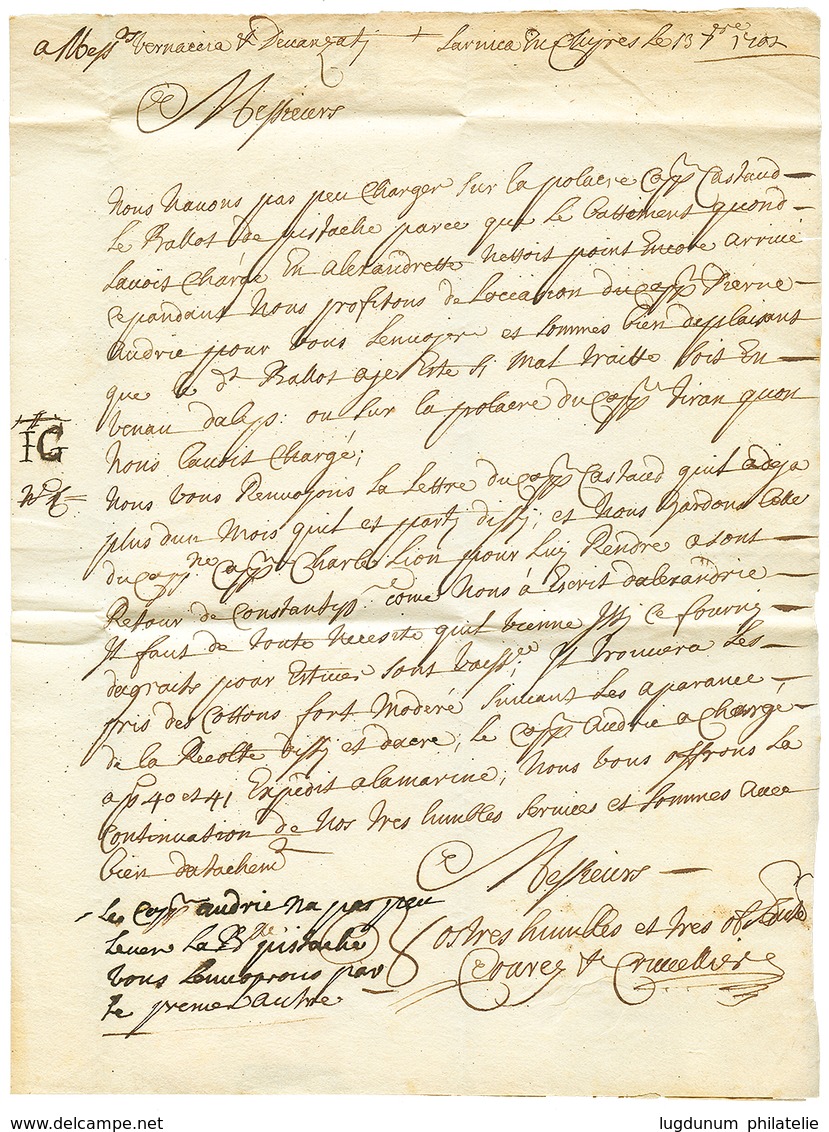 a Mess.rs Vernaccia & Deuanzatj + Larnica En Chypres Le 13 7bre 1702
Messieurs
Nous Nauons pas peu Charger Sur la polacre Capp.e Castaud
Le Ballot de pistache parce que Le Battiment quond
Lauoit Chargé En alexandrette Nettoit point Encore arriué
Cepandant Nous profitons de Loccation du Capp.e Pierre
Audrié pour vous Lenuoyer et Sommes bien deplaisant
que le d.t Ballot aye Esté Si Mal traitte Soit En
Venan dalep ou Sur la polacre du Capp.e Tiran quon
Nous Lauoit Chargé;
IG
N.o
Nous Vous Renuoyons La Lettre du Capp.e Castaud quil a deja
plus dun Mois quil et party dissy; et Nous Gardons Celle
du Capp.ne Charle Lion pour Luy Rendre a sont
Retour de Constantip.e come Nous à Escrit dalexandrie
Il faut de toute Necesité quil vienne Issy Ce fournir
dagraits pour Estiuer Sont Vaiss.; Il trouuera Les
pris des Cottons fort Moderé Suiuant Les aparance
de la Recolte dissy et dacre, Le Capp.e Audrié a Chargé
a p 40 et 41 Expedit a la marine, Nous vous offrons La
Continuation de Nos tres humbles Seruices et Sommes Auec
bien datachem.t
Messieurs
Le Capp.e audrie Na pas peu
Leuer La B.lle pistache
Vous Lenuoyrons par
Le premier autre
Vos tres humbles et tres
Couret & Cruuellier
www.delcampe.net
lugdunum philatelie